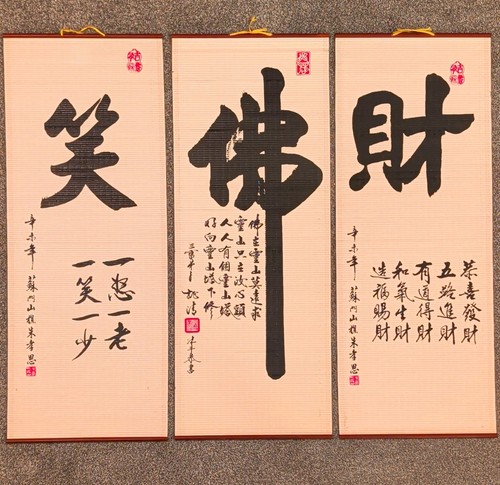 財
恭喜發財
五路進財
有道得財
和氣生財
造福賜財
辛未年 蘇門山樵朱孝思
佛
佛在靈山莫遠求
靈山只在汝心頭
人人有個靈山塔
好向靈山塔下修
笑
一怒一老
一笑一少
辛未年 蘇門山樵朱孝思